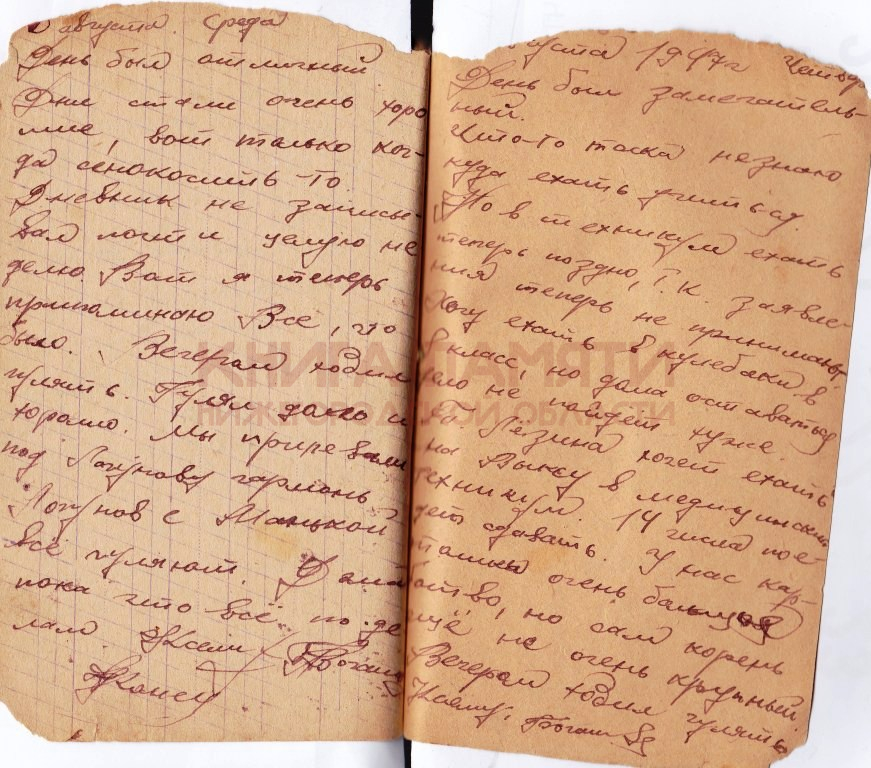 августа. Среда
День был отличный
Дни стали очень хоро
шие, вот только ког-
да сенокосить-то.
Дневник не записы-
вал почти целую не
делю. Вот я теперь
припоминаю Всё, что
было. Вечером ходил
гулять. Гулял долго и
хорошо. Мы припевали
под Логунову гармонь
Логунов с Манькой
всё гуляют. Дома
пока что всё по де
лам.
густа 1947г
День был замечатель-
ный.
Что-то тоска незнаю
куда ехать учиться.
Но в техникум ехать
теперь поздно, Т.К. заявле-
ния теперь не принимают
Хочу ехать в Кулебаки в
8 класс, но дома оставаться
дело не пойдет хуже.
Лёзина хочет ехать
на Выксу в медицинский
техникум. 14 числа пое
дет сдавать. У нас кар-
тошка очень большая
ботво, но сам корень
ещё не очень крупный.
Вечером ходил гулять
КНИГА ПАМЯТИ
НИЖЕГОРОДСКОЙ ОБЛАСТИ